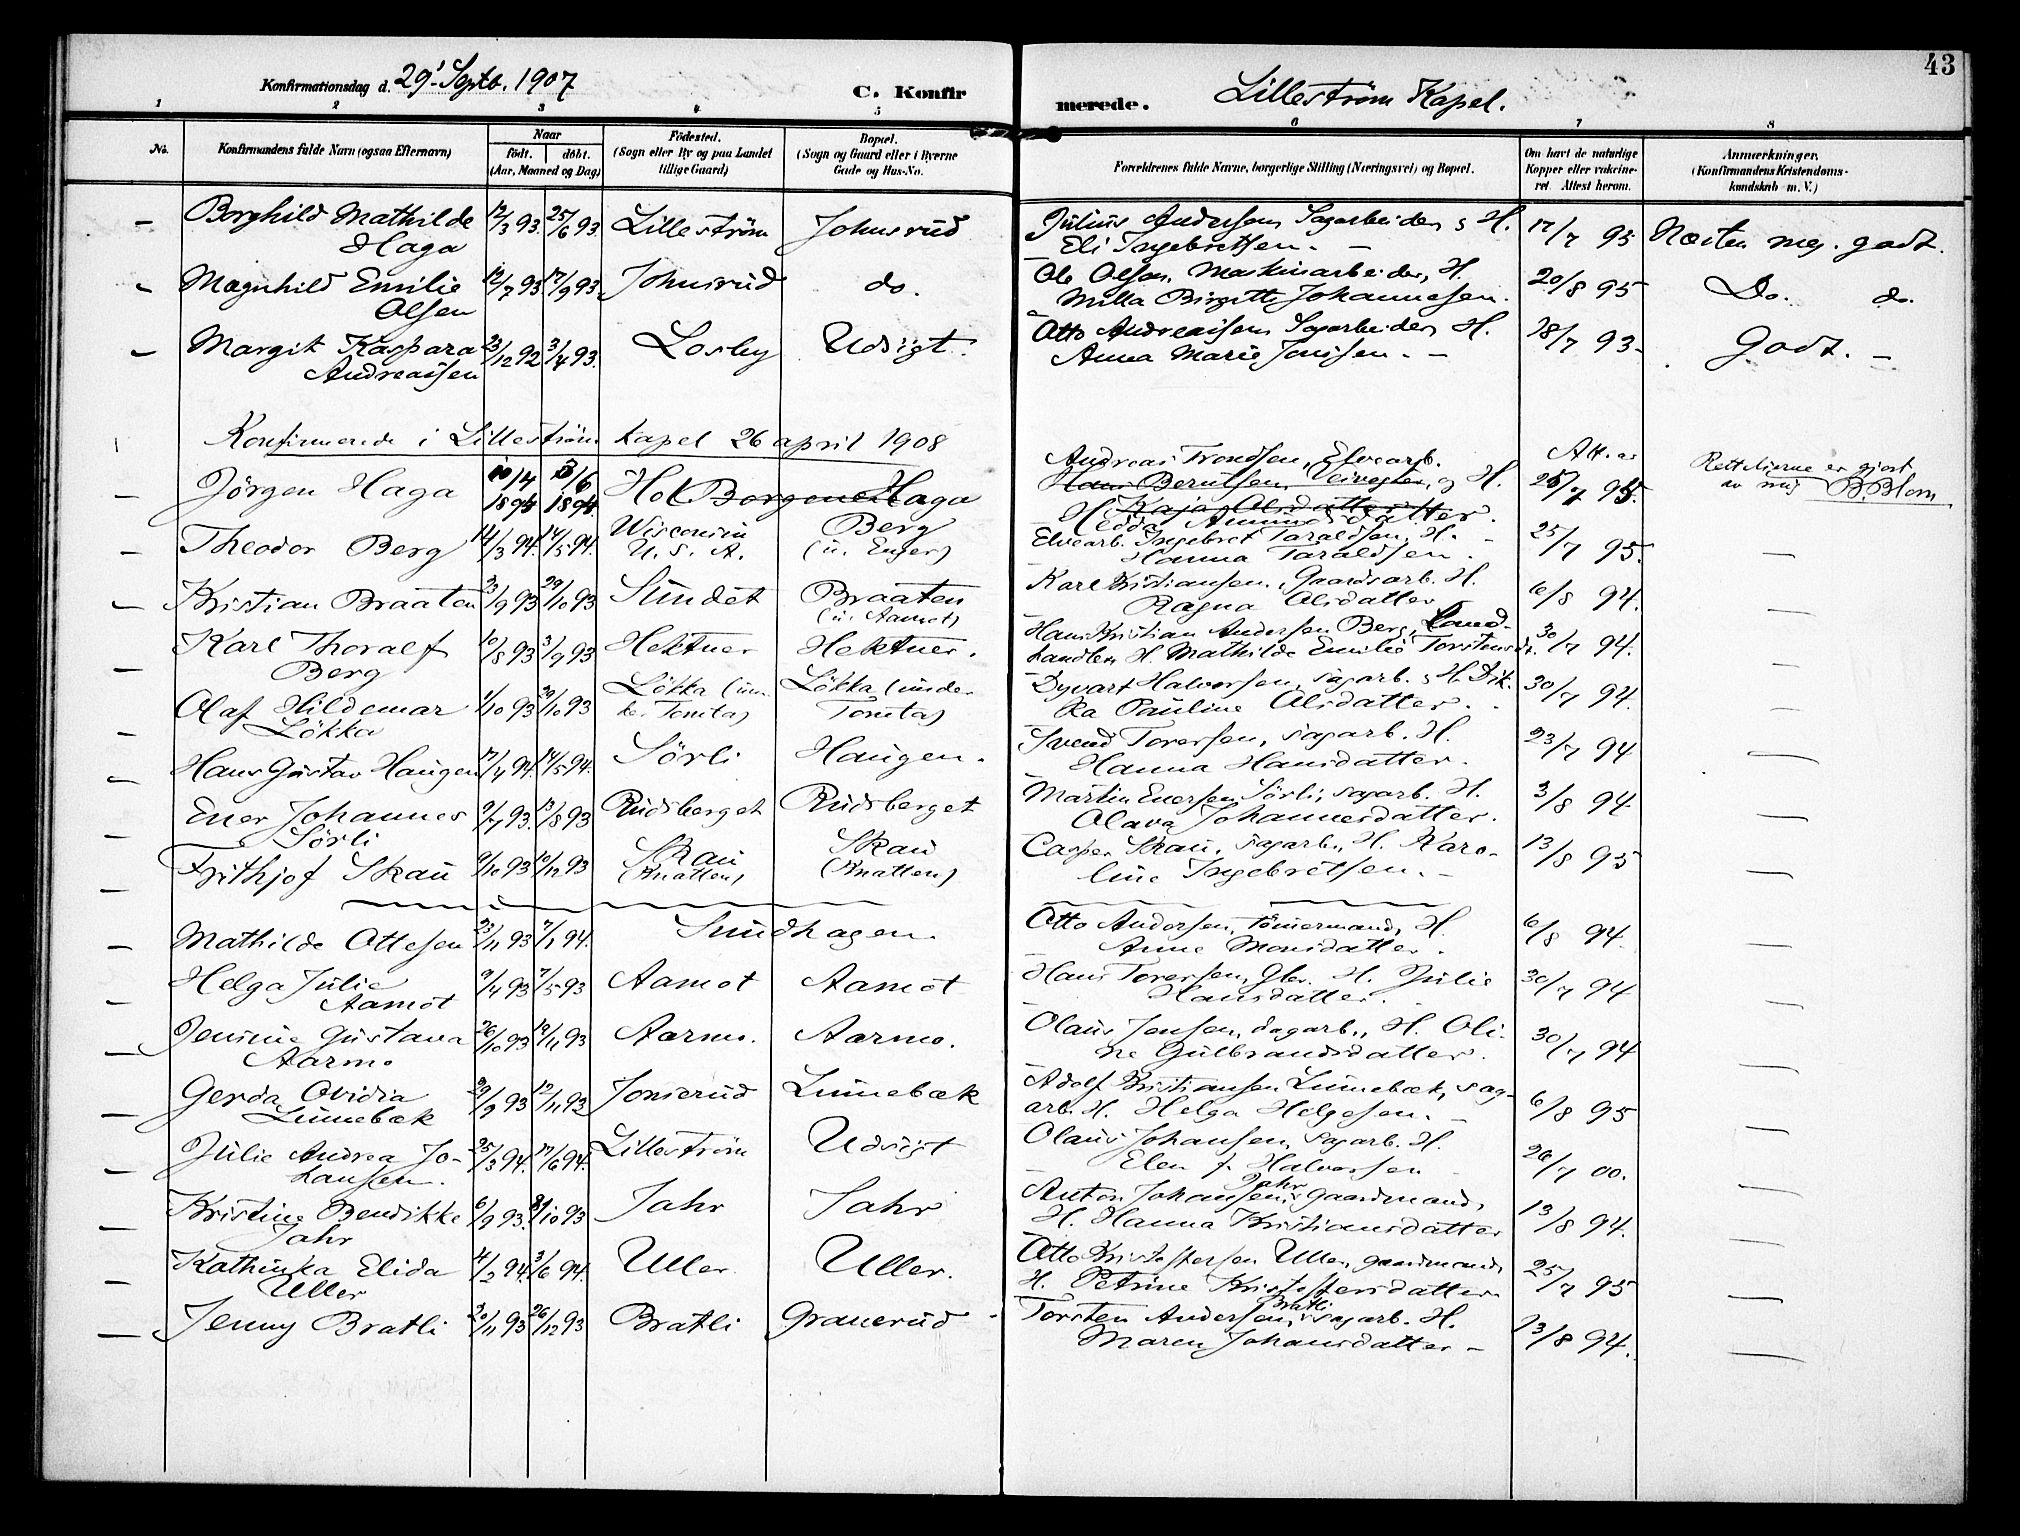 43
Konfirmationsdag d. 29' Septb. 1907 C. Konfirmerede. Lillestrøm Kapel.
1 2 3 4 5 6 7 8
No. Konfirmandens fulde Navn (ogsaa Efternavn) Naar født. døbt. (Aar, Maaned og Dag) Fødested. (Sogn eller By og paa Landet tillige Gaard) Bopæl. (Sogn og Gaard eller i Byerne Gade og Hus-No. Forældrenes fulde Navne, borgerlige Stilling (Næringsvei) og Bopæl. Om havt de naturlige Kopper eller vakcineret. Attest herom. Anmærkninger. (Konfirmandens Kristendomskundskab m. V.)
— Borghild Mathilde 12/3 93. 25/6 93. Lillestrøm Johnsrud Julius Andersen Sagarbeider & H. 17/7 95 Næsten meg. godt.
Haga Eli Ingebretsen. —
— Magnhild Emilie 12/7 93 17/9 93. Johnsrud do. Ole Olsen, Maskinarbeider, H. 20/8 95 Do. do.
Olsen Milla Birgitte Johannesen.
— Margit Kaspara 23/12 92 3/4 93. Losby Udsigt. Otto Andreassen Sagarbeider H. 18/7 93 Godt. —
Andreassen Anna Marie Jonssen. —
Konfirmerede i Lillestrøm kapel 26 april 1908
— Jørgen Haga 10/4 1894 3/6 1894 Hol Borgene Haga Andreas Trondsen, Elvearb. Att. av Rettelserne er gjort
Hans Berntsen, Veivogter, og H. 25/7 95. av mig B. Blom
Kaja Olsdatter.
Hedda Amundsdatter
— Theodor Berg 14/3 94. 14/5 94. Wisconsin Berg Elvearb. Ingebret Taraldsen, H. 25/7 95. —
U. S. A. (u. Enger) Hanna Taraldsen.
— Kristian Braaten 23/9 93 29/10 93 Sundet Braaten Karl Kristiansen, Gaardsarb. H. 6/8 94. —
(u. Aamot) Ragna Olsdatter
— Karl Thoralf 10/8 93 3/9 93 Hektner Hektner. Hans Kristian Andersen Berg, Land- 30/7 94. —
Berg handler, H. Mathilde Emilie Torstensdr.
— Olaf Hildemar 1/10 93 29/10 93 Løkka (un- Løkka (under Dyvart Halvorsen, sagarb. & H. Dik- 30/7 94. —
Løkka Tomta) ka Pauline Olsdatter.
— Hans Gustav Haugen 17/4 94. 14/5 94. Sørli Haugen. Svend Toversen, sagarb. H. 23/7 94 —
Hanna Hansdatter.
— Ener Johannes 9/7 93. 13/8 93 Rudsberget Rudsberget Martin Enersen Sørli, sagarb. H. 3/8 94 —
Sørli Olava Johannesdatter.
— Frithjof Skau 9/10 93 10/12 93 Skau Skau Casper Skau, sagarb., H. Karo- 13/8 95 —
(Knatten) (Knatten) line Ingebretsen. —
— Mathilde Ottesen 23/11 93 7/1 94. Sundhagen. Otto Andersen, tømermand, H. 6/8 94. —
Anne Monsdatter.
— Helga Julie 9/4 93 7/5 93 Aamot Aamot Hans Toversen, Gbr. H. Julie 30/7 94 —
Aamot Hansdatter.
— Jennie Gustava 26/10 93 19/11 93 Aarmo. Aarmo. Olaus Jensen, dagarb., H. Oli- 30/7 94 —
Aarmo ne Gulbrandsdatter.
— Gerda Ovidia 29/9 93 12/11 93 Jonsrud Linnebæk Adolf Kristiansen Linnebæk, sag- 6/8 95 —
Linnebæk arb. H. Helga Helgesen. —
— Julie Andrea Jo- 25/3 94. 17/6 94. Lillestrøm Udsigt Olaus Johansen, sagarb. H. 26/7 00. —
hansen. Elen f. Halvorsen
— Kristine Bendikke 6/9 93. 8/10 93 Jahr Jahr Anton Johansen Jahr, gaardmand, 13/8 94. —
Jahr H. Hanna Kristiansdatter
— Kathinka Elida 4/2 94. 3/6 94. Uller Uller. Otto Kristoffersen Uller, gaardmand, 25/7 95 —
Uller H. Petrine Kristoffersdatter
— Jenny Bratli 20/11 93 26/12 93 Bratli Granerud Torsten Andersen Bratli, sagarb. H. 13/8 94. —
Maren Johansdatter —